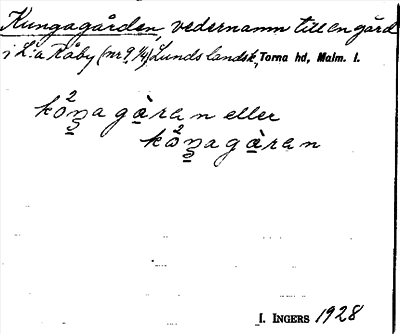 Kungagården, vedernamn till en gård
i L:a Råby (nr 9, 1/4) Lunds landsk, Torna hd, Malm. l.
kå²ŋagàrɑn eller
kå²ŋagàrɑn
I. INGERS 1928